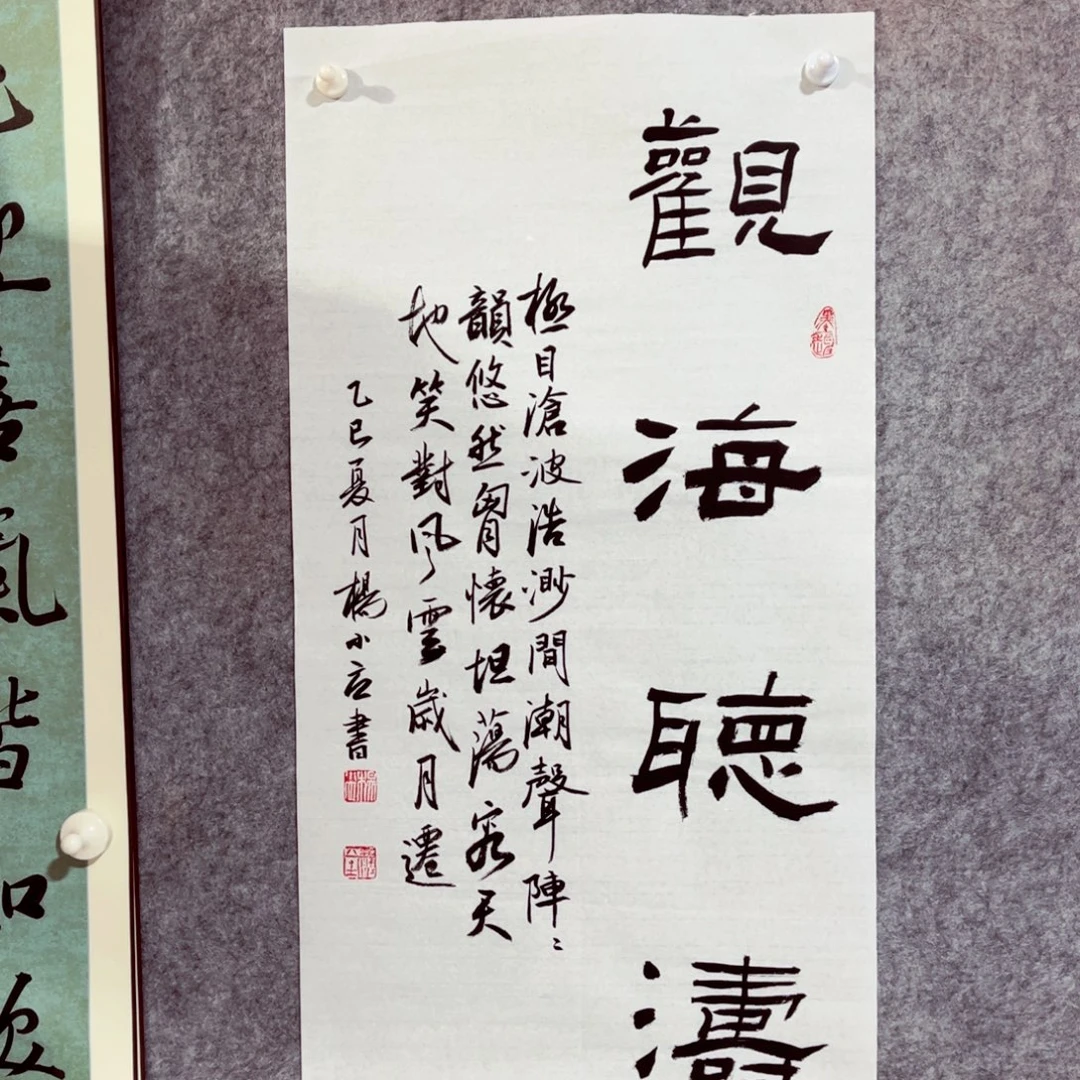 觀海聽濤
極目滄波浩渺間潮聲陣〻
韻悠然胷懷坦蕩容天
地笑對風雲歲月遷
乙巳夏月楊小唐書
善氣皆和